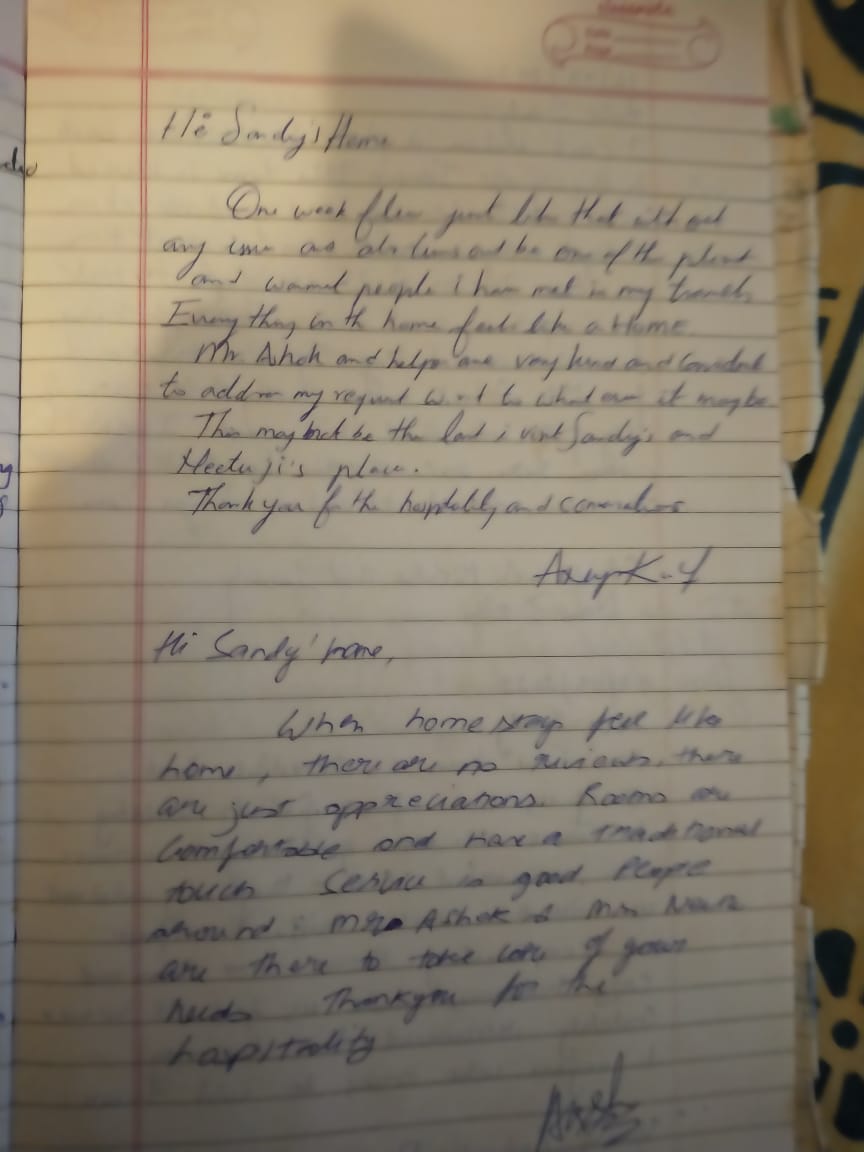 Hi Sandy's Home
One week flew just like that without
any issue and also turns out be one of the
and people i have met in my travels
Everything in the home feels like a Home
Mr Ashok and helps are very kind and
to address my request what ever it maybe
This may not be the last i visit Sandy's and
Neetu ji's place.
Thank you for the hospitality and
Hi Sandy' home,
When home stay feel like
home, there are no reviews, there
are just appreciations. Rooms are
Comfortable and have a traditional
touch Service is good People
around : Mr Ashok &
are there to take care of your
needs Thankyou for the
hospitality